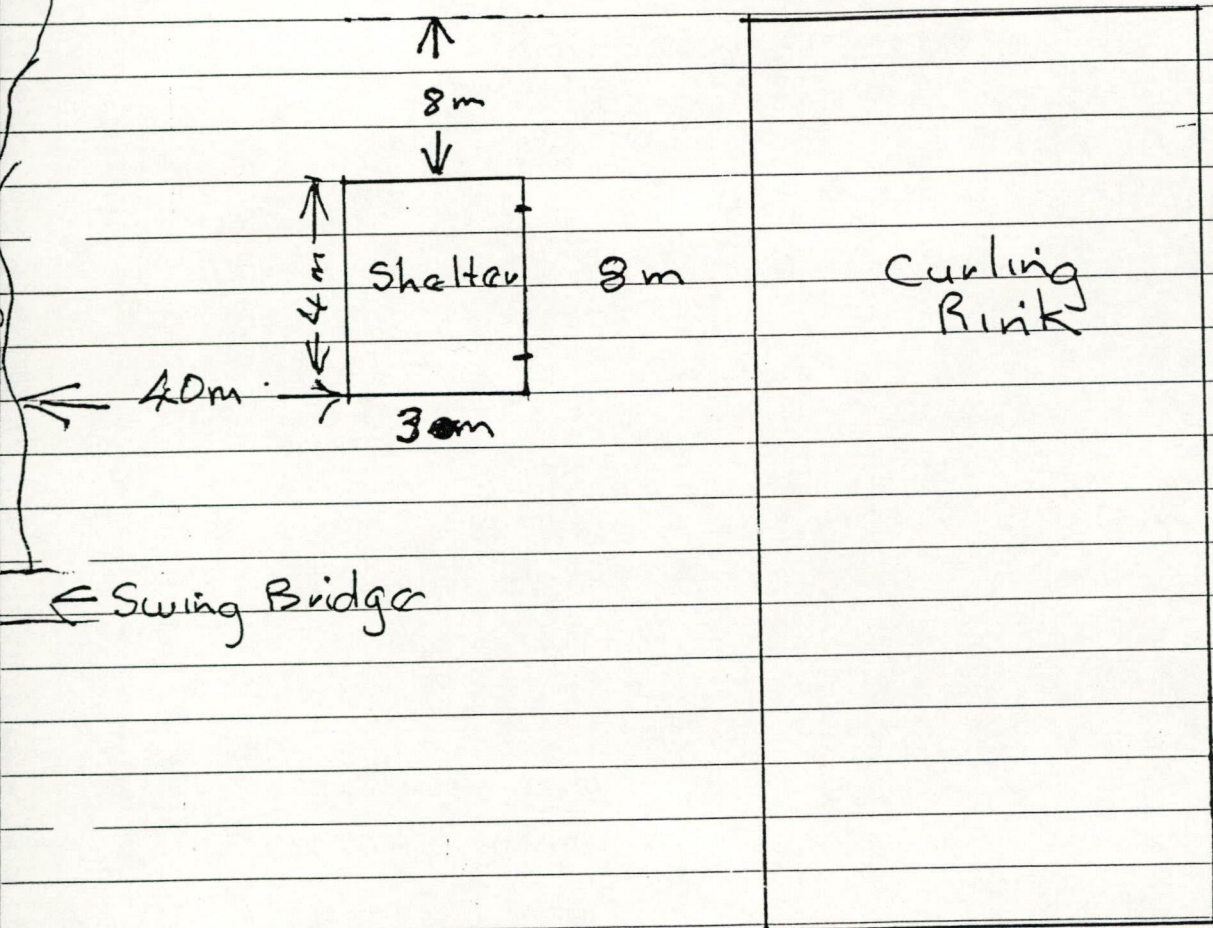 8m
4m
Shelter
8m
Curling
Rink
40m
3m
← Swing Bridge